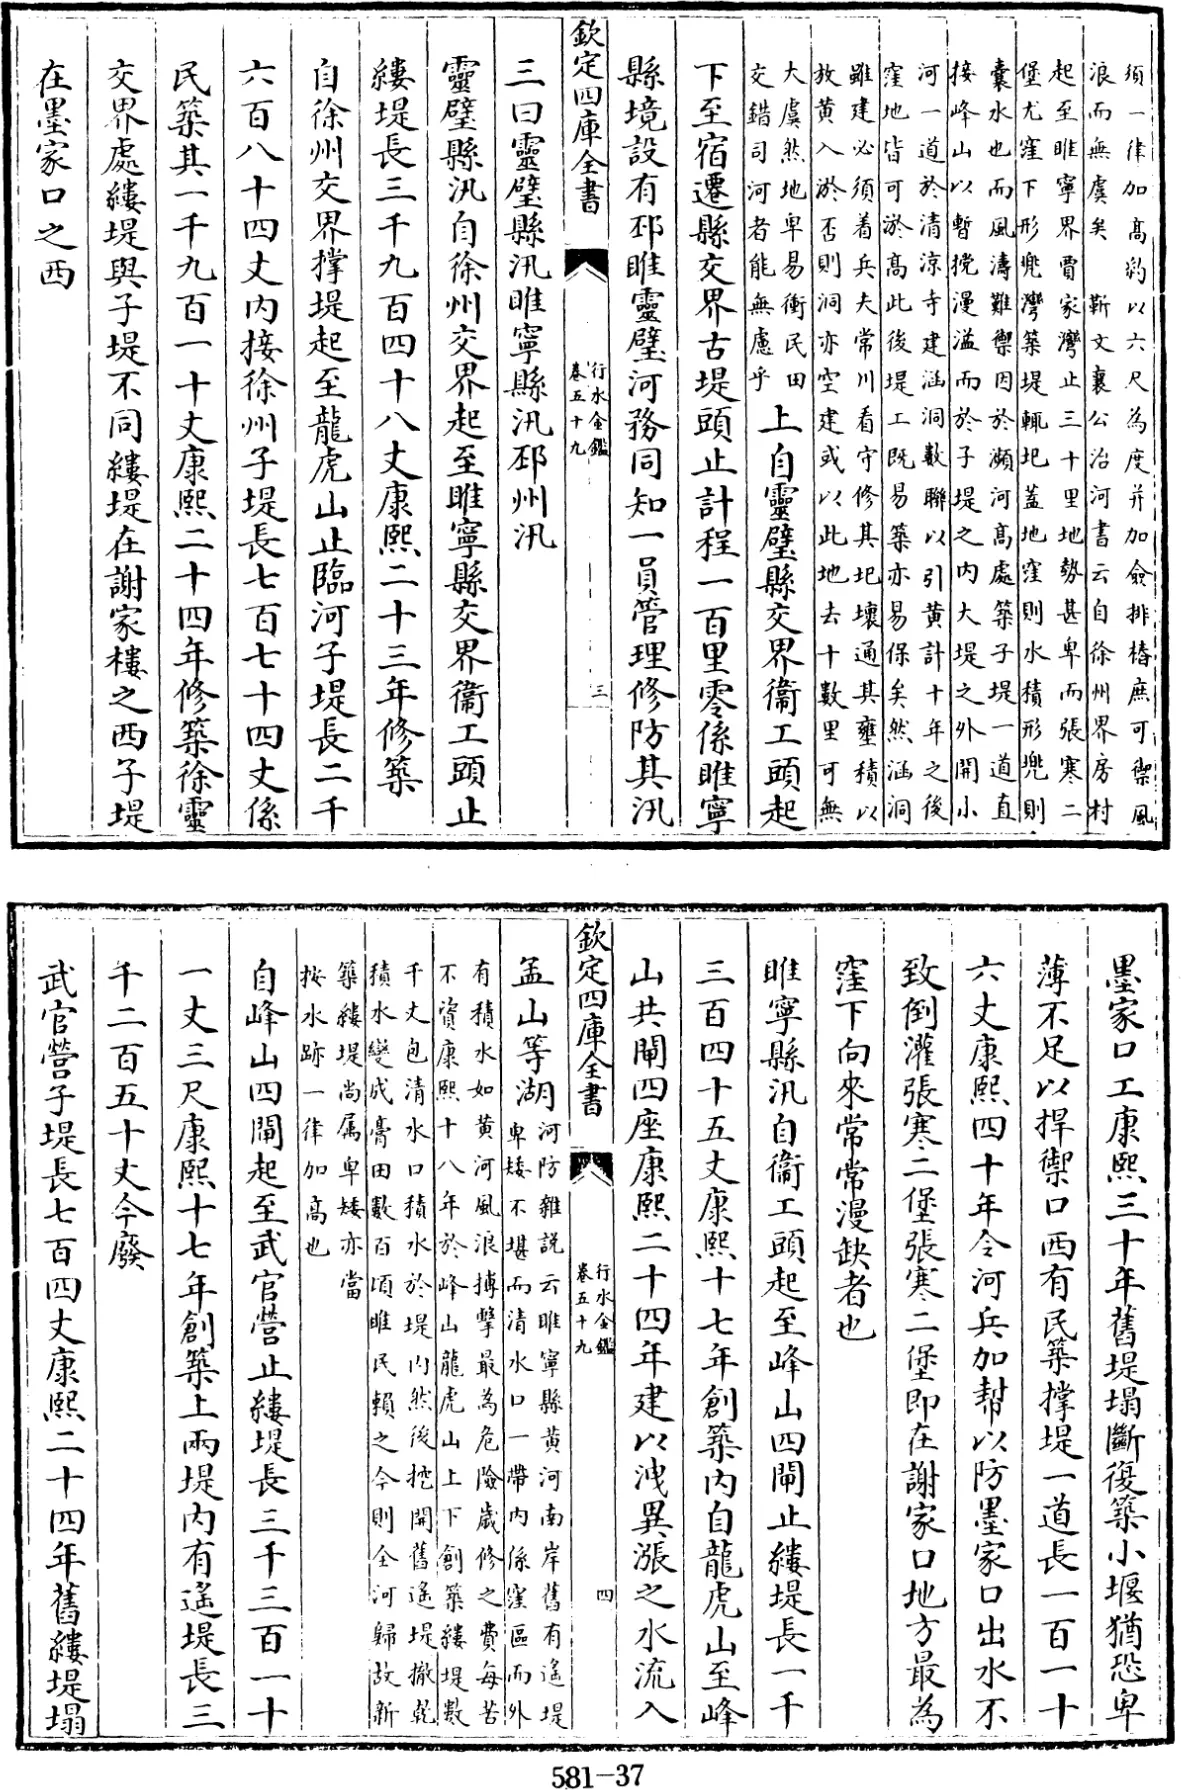 須一律加高約以六尺為度并加僉排樁庶可禦風
浪而無虞矣　靳文襄公治河書云自徐州界房村
起至睢寧界賈家灣止三十里地勢甚卑而張寒二
堡尤窪下形兜灣築堤輒圯蓋地窪則水積形兜則
囊水也而風濤難禦因於瀕河高處築子堤一道直
接峰山以暫攩漫溢而於子堤之內大堤之外開小
河一道於清涼寺建涵洞數聯以引黄計十年之後
窪地皆可淤高此後堤工既易築亦易保矣然涵洞
雖建必須着兵夫常川看守修其圮壞通其壅積以
放黄入淤否則洞亦空建或以此地去十數里可無
大虞然地卑易衝民田
交錯司河者能無慮乎
上自靈璧縣交界衞工頭起
下至宿遷縣交界古堤頭止計程一百里零係睢寧
縣境設有邳睢靈璧河務同知一員管理修防其汛
欽定四庫全書
行水金鑑
卷五十九
三
三曰靈璧縣汛睢寧縣汛邳州汛
靈璧縣汛自徐州交界起至睢寧縣交界衞工頭止
縷堤長三千九百四十八丈康熙二十三年修築
自徐州交界撑堤起至龍虎山止臨河子堤長二千
六百八十四丈内接徐州子堤長七百七十四丈係
民築其一千九百一十丈康熙二十四年修築徐靈
交界處縷堤與子堤不同縷堤在謝家樓之西子堤
在墨家口之西
墨家口工康熙三十年舊堤塌斷復築小堰猶恐卑
薄不足以捍禦口西有民築撑堤一道長一百一十
六丈康熙四十年令河兵加幫以防墨家口出水不
致倒灌張寒二堡張寒二堡即在謝家口地方最為
窪下向來常常漫缺者也
睢寧縣汛自衞工頭起至峰山四閘止縷堤長一千
三百四十五丈康熙十七年創築内自龍虎山至峰
山共閘四座康熙二十四年建以洩異漲之水流入
欽定四庫全書
行水金鑑
卷五十九
四
孟山等湖
河防雜說云睢寧縣黄河南岸舊有遙堤
卑矮不堪而清水口一帶内係窪區而外
有積水如黄河風浪搏擊最為危險歲修之費每苦
不資康熙十八年於峰山龍虎山上下創築縷堤數
千丈包清水口積水於堤内然後挖開舊遙堤撤乾
積水變成膏田數百頃睢民賴之今則全河歸故新
築縷堤尚属卑矮亦當
按水跡一律加高也
自峰山四閘起至武官營止縷堤長三千三百一十
一丈三尺康熙十七年創築上兩堤内有遙堤長三
千二百五十丈今廢
武官營子堤長七百四丈康熙二十四年舊縷堤塌
581-37